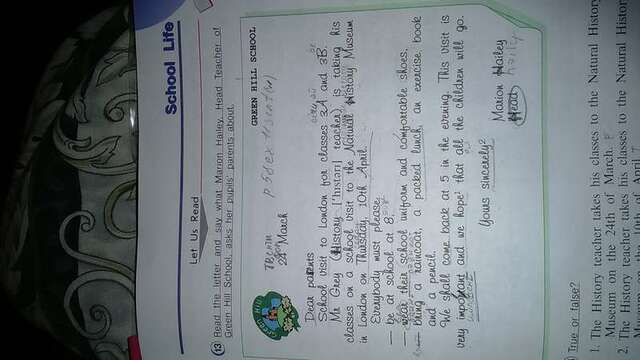 School Life
Let Us Read
13 Read the letter and say what Marion Hailey, Head Teacher of
Green Hill School, asks her pupils' parents about.
GREEN HILL SCHOOL
Green Hill
24 March
Dear parents
School visit to London for classes 3A and 3B.
Mr Grey (History ['hıstərı] teacher), is taking his
classes on a school visit to the Natural History Museum
in London on Thursday, 10th April.
Everybody must please:
— be at school at 8,
— wear their school uniform and comfortable shoes,
bring a raincoat, a packed lunch, an exercise book
and a pencil.
We shall come back at 5 in the evening. This visit is
very important and we hope¹ that all the children will go.
Yours sincerely²
Marion Hailey
Head
True or false?
1. The History teacher takes his classes to the Natural History
Museum on the 24th of March. F
2. The History teacher takes his classes to the Natural History
Museum on the 10th of April. T